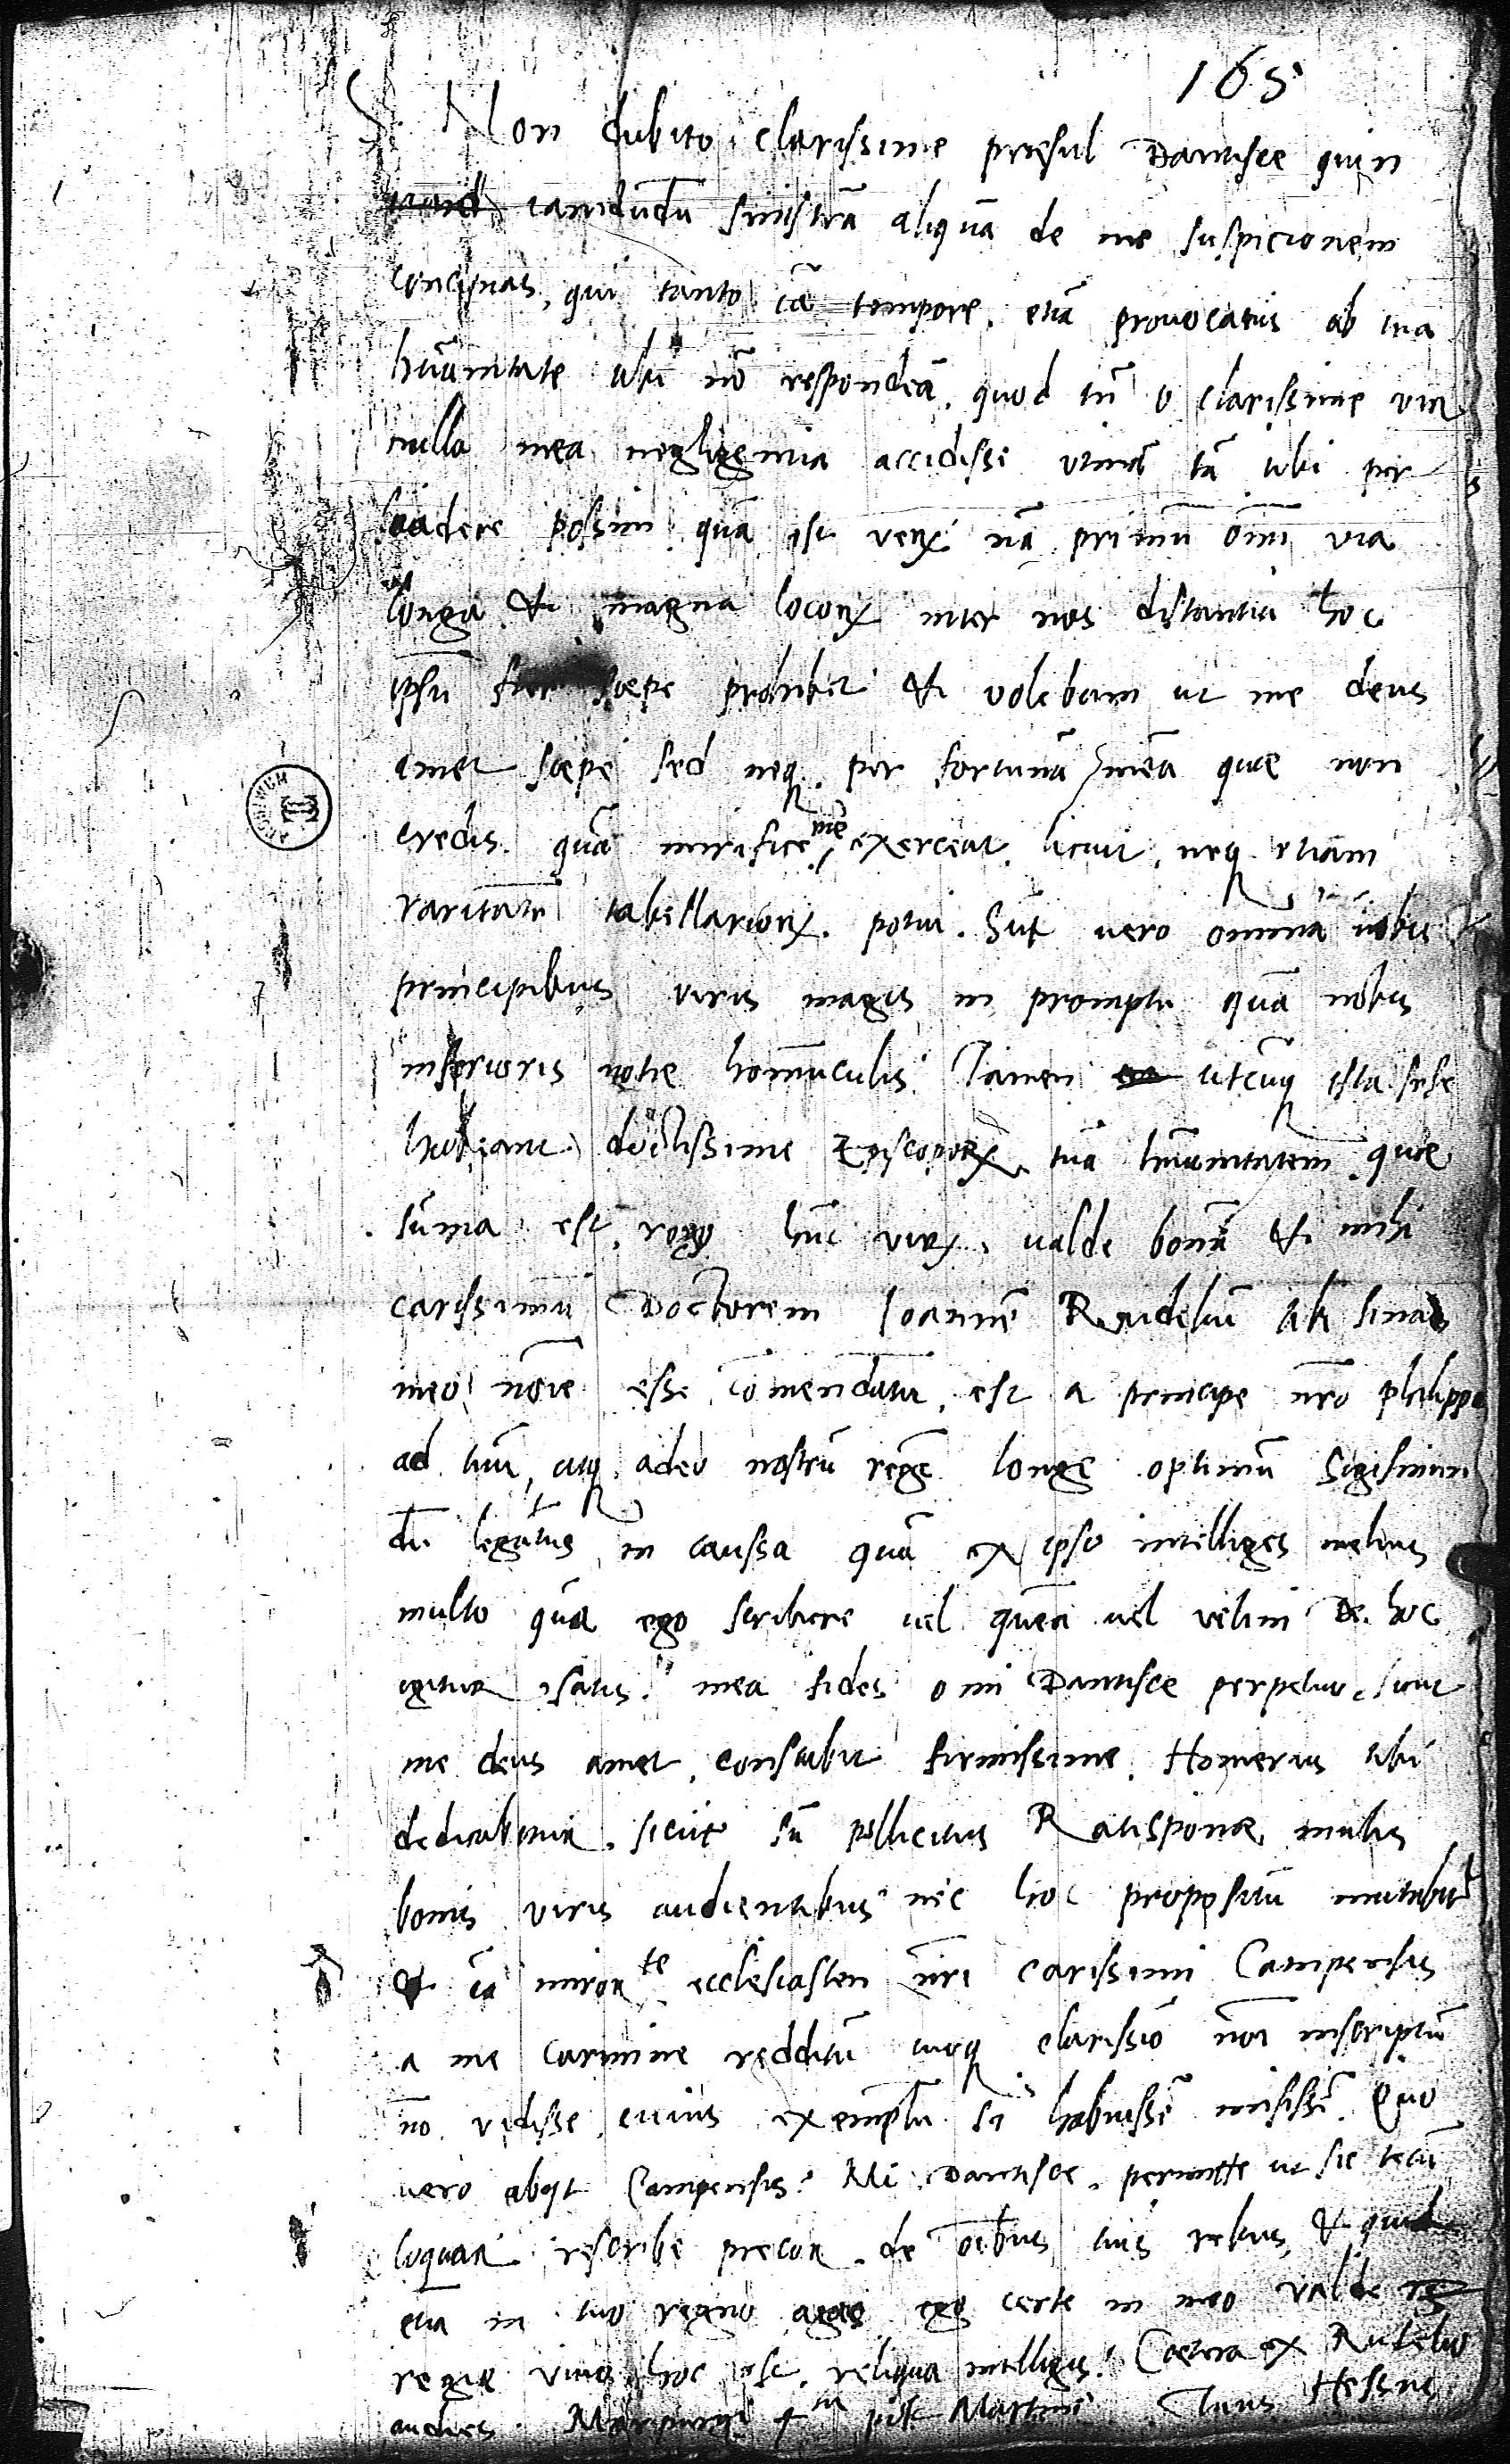 165
S. Non dubito, clarissime praesul Dantisce quin
iamdudū sinistrā aliquā de me suspicionem
concipias, qui tanto iā tempore, etiā provocatus ab tua
hūanitate tibi nō respondeā, quod tn̄ o clarissime vir
nulla mea negligentia accidisse utinā tā tibi per
suadere possim quā est verū nā primū om̄i via
longa & magna locorꝝ inter nos distantia hoc
ipsū fieri saepe prohibet & volebam ut me deus
amet saepe sed neqꝫ per fortunā meā quae non
credis quā mirifice me exerceat, licuit, neqꝫ etiam
raritatē tabellariorꝝ potui. Sūt vero omnia vobis
principibus viris magis in promptu quā nobis
inferioris notae homūculis. Tamen utcūqꝫ ista sese
habeant, doctissime Episcoporꝝ, tuā hūanitatem quae
sūma est, rogo hūc virꝝ, valde bonū & mihi
carissimū Doctorem Ioannē Rudeliū tibi sinas
meo noīe esse cōmendatū, est a principe nr̄o philippo
ad tuū, atqꝫ adeo nostrū regē longe optimū Sigismun
dū legatus in caussa quā ex ipso intelliges melius
multo quā ego scribere vel queā vel velim De hoc
igitur satis. mea fides o mi Dantisce perpetuo, sicut
me deus amet, constabit firmissime. Homerus tibi
dedicabitur, sicut sū pollicitus Ratisponae, multis
bonis viris audientibus nec hoc propositū mutabitur
& iā miror te ecclesiasten nr̄i carissimi Campensis
a me carmine redditū tuoqꝫ clarissīo noī inscriptū
nō vidisse, cuius exemplū si habuissē misissē. Quo
vero abijt Campensis? Mi Dantisce, permitte ut sic tecū
loquar, rescribe precor de oībus tuis rebus, & quid
etiā in tuo regno agas ego certe in meo valde
regie vivo, hoc est, reliqua intelligis. Caetera ex Rudelio
audies. Marpurgi 4ta post Martini Tuus Hessus.